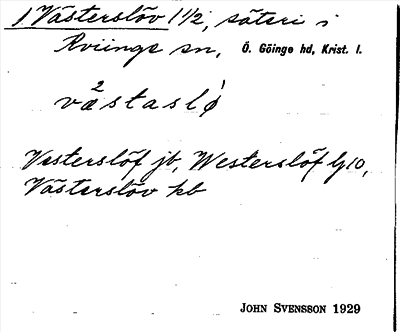 1 Västerslöv 1 1/2, säteri i
Rviinge sn, Ö. Göinge hd, Krist. l.
væ²staslø¹
Vesterslöf jb, Westerslöf Gj10,
Västerslöv kb
JOHN SVENSSON 1929